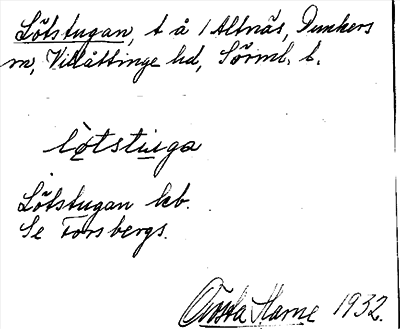 Lötstugan, t å 1 Altnäs, Dunkers
sn, Villåttinge hd, Sörml. l.
lö̀tstuga
Lötstugan kb.
Se Forsbergs.
Gösta Hame 1932.